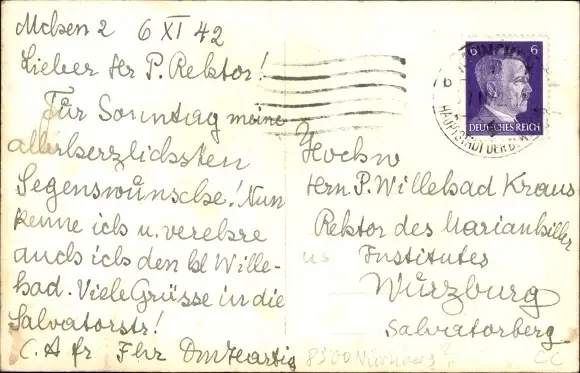 Mchen 2 6 XI 42
Lieber Hr P. Rektor!
Für Sonntag meine
allerherzlichsten
Segenswünsche! Nun
kenne ich u. verehre
auch ich den hl Wille-
had. Viele Grüsse in die
Salvatorstr!
C. A fr Fhr
Hochw
Herrn P. Willehad Kraus
Rektor des Marianhiller
Institutes
Würzburg
Salviatorberg
6 6
DEUTSCHES REICH
MÜNCHEN
HAUPTSTADT DER
CC